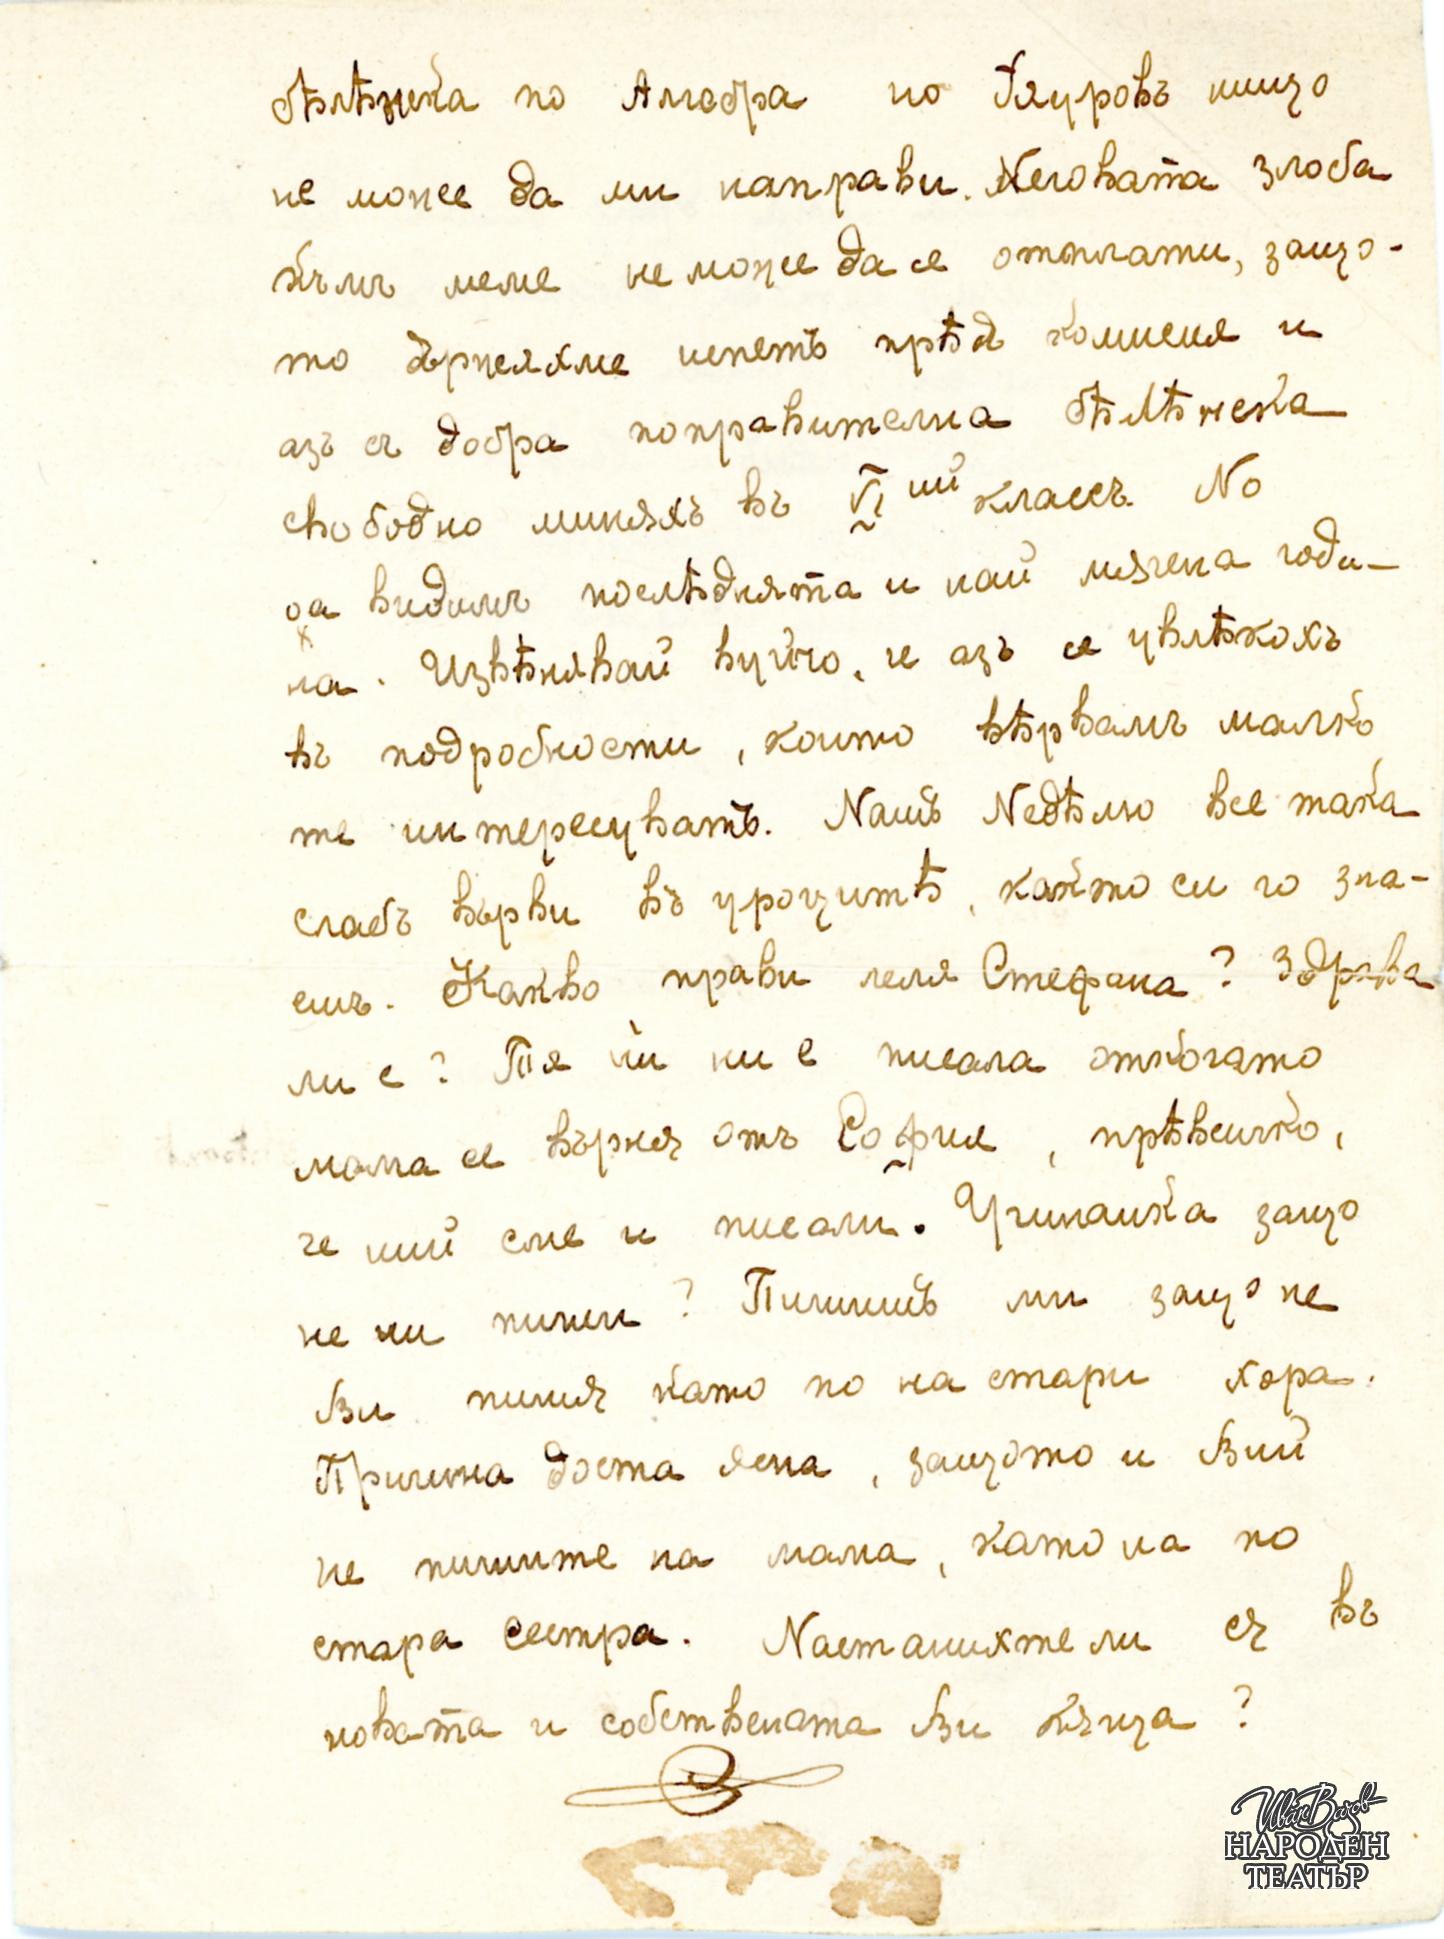 бѣлѣжка по Алгебра но Гяуровъ нищо
не може да ми направи. Неговата злоба
къмъ мене не може да се отплати, защо-
то държахме испетъ прѣдъ комисия и
азъ съ добра поправителна бѣлѣжка
свободно минахъ въ VI ий классъ. No
да видимъ послѣднята и най мѫчна годи-
на. Извѣнявай вуйчо, че азъ се увлѣкохъ
въ подробности, които вѣрвамъ малко
те интересуватъ. Nашъ Nедѣлю все така
слабъ върви въ уроцитѣ, както си го зна-
ешъ. Какво прави леля Стефана? Здрава
ли е? Тя ни е писала откогато
мама се върнѫ отъ София, прѣвсичко,
че ний сме и писали. Учинайка защо
не ни пише? Пишишъ ми защо не
Ви пишѫ като по на стари хора.
Причина доста ясна, защото и Вий
не пишите на мама, като на по
стара сестра. Nастанихте ли сѫ въ
новата и собствената Ви кѫща?
Иван Вазов
НАРОДЕН
ТЕАТЪР